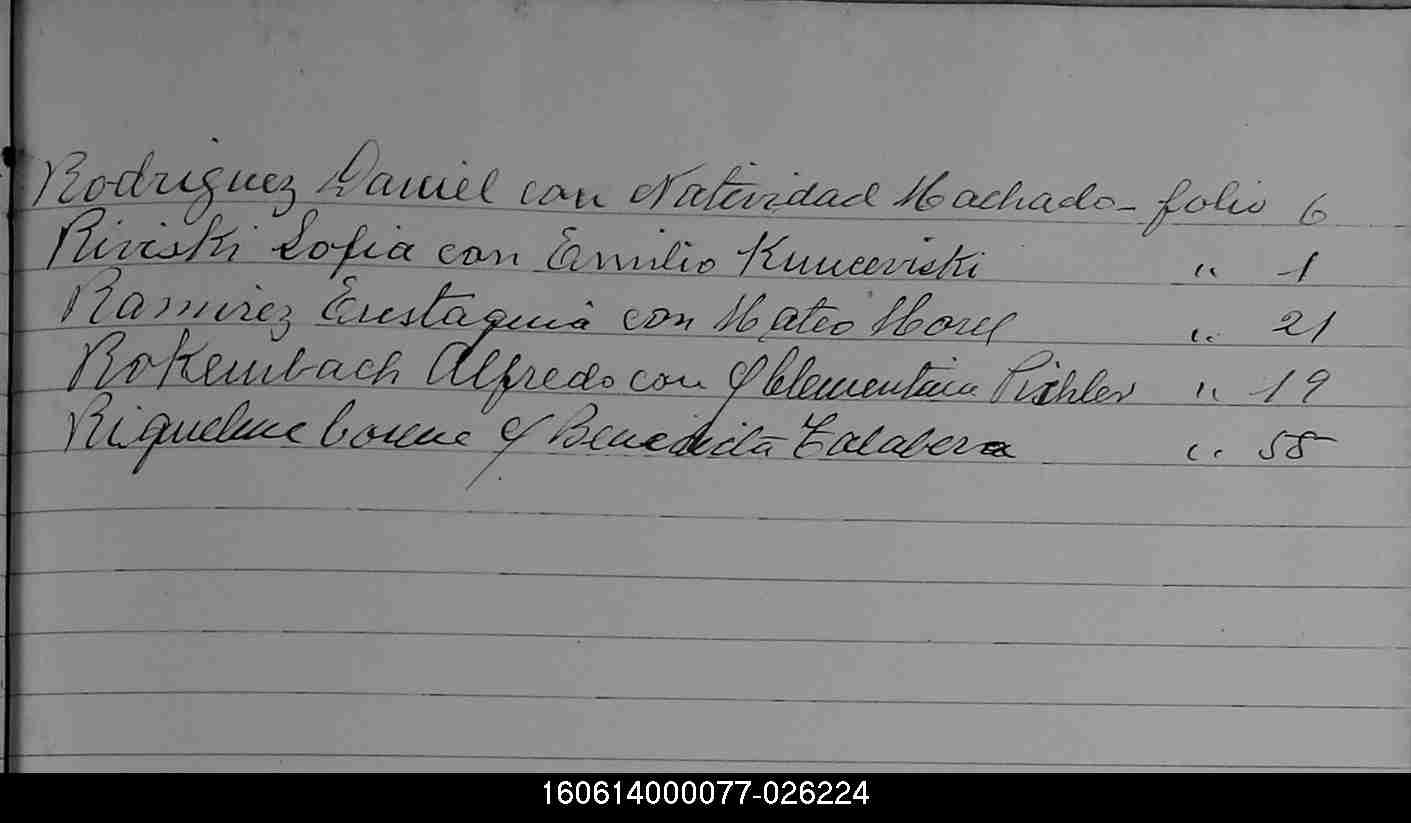 Rodriguez Daniel con Natividad Machado - folio 6
Riviski Sofia con Emilio Kunceviski " 1
Ramirez Eustaquia con Mateo Morel " 21
Rokembach Alfredo con Clementina Pichler " 19
Riquelme Cosme y Benedicta Talabera " 58
160614000077-026224